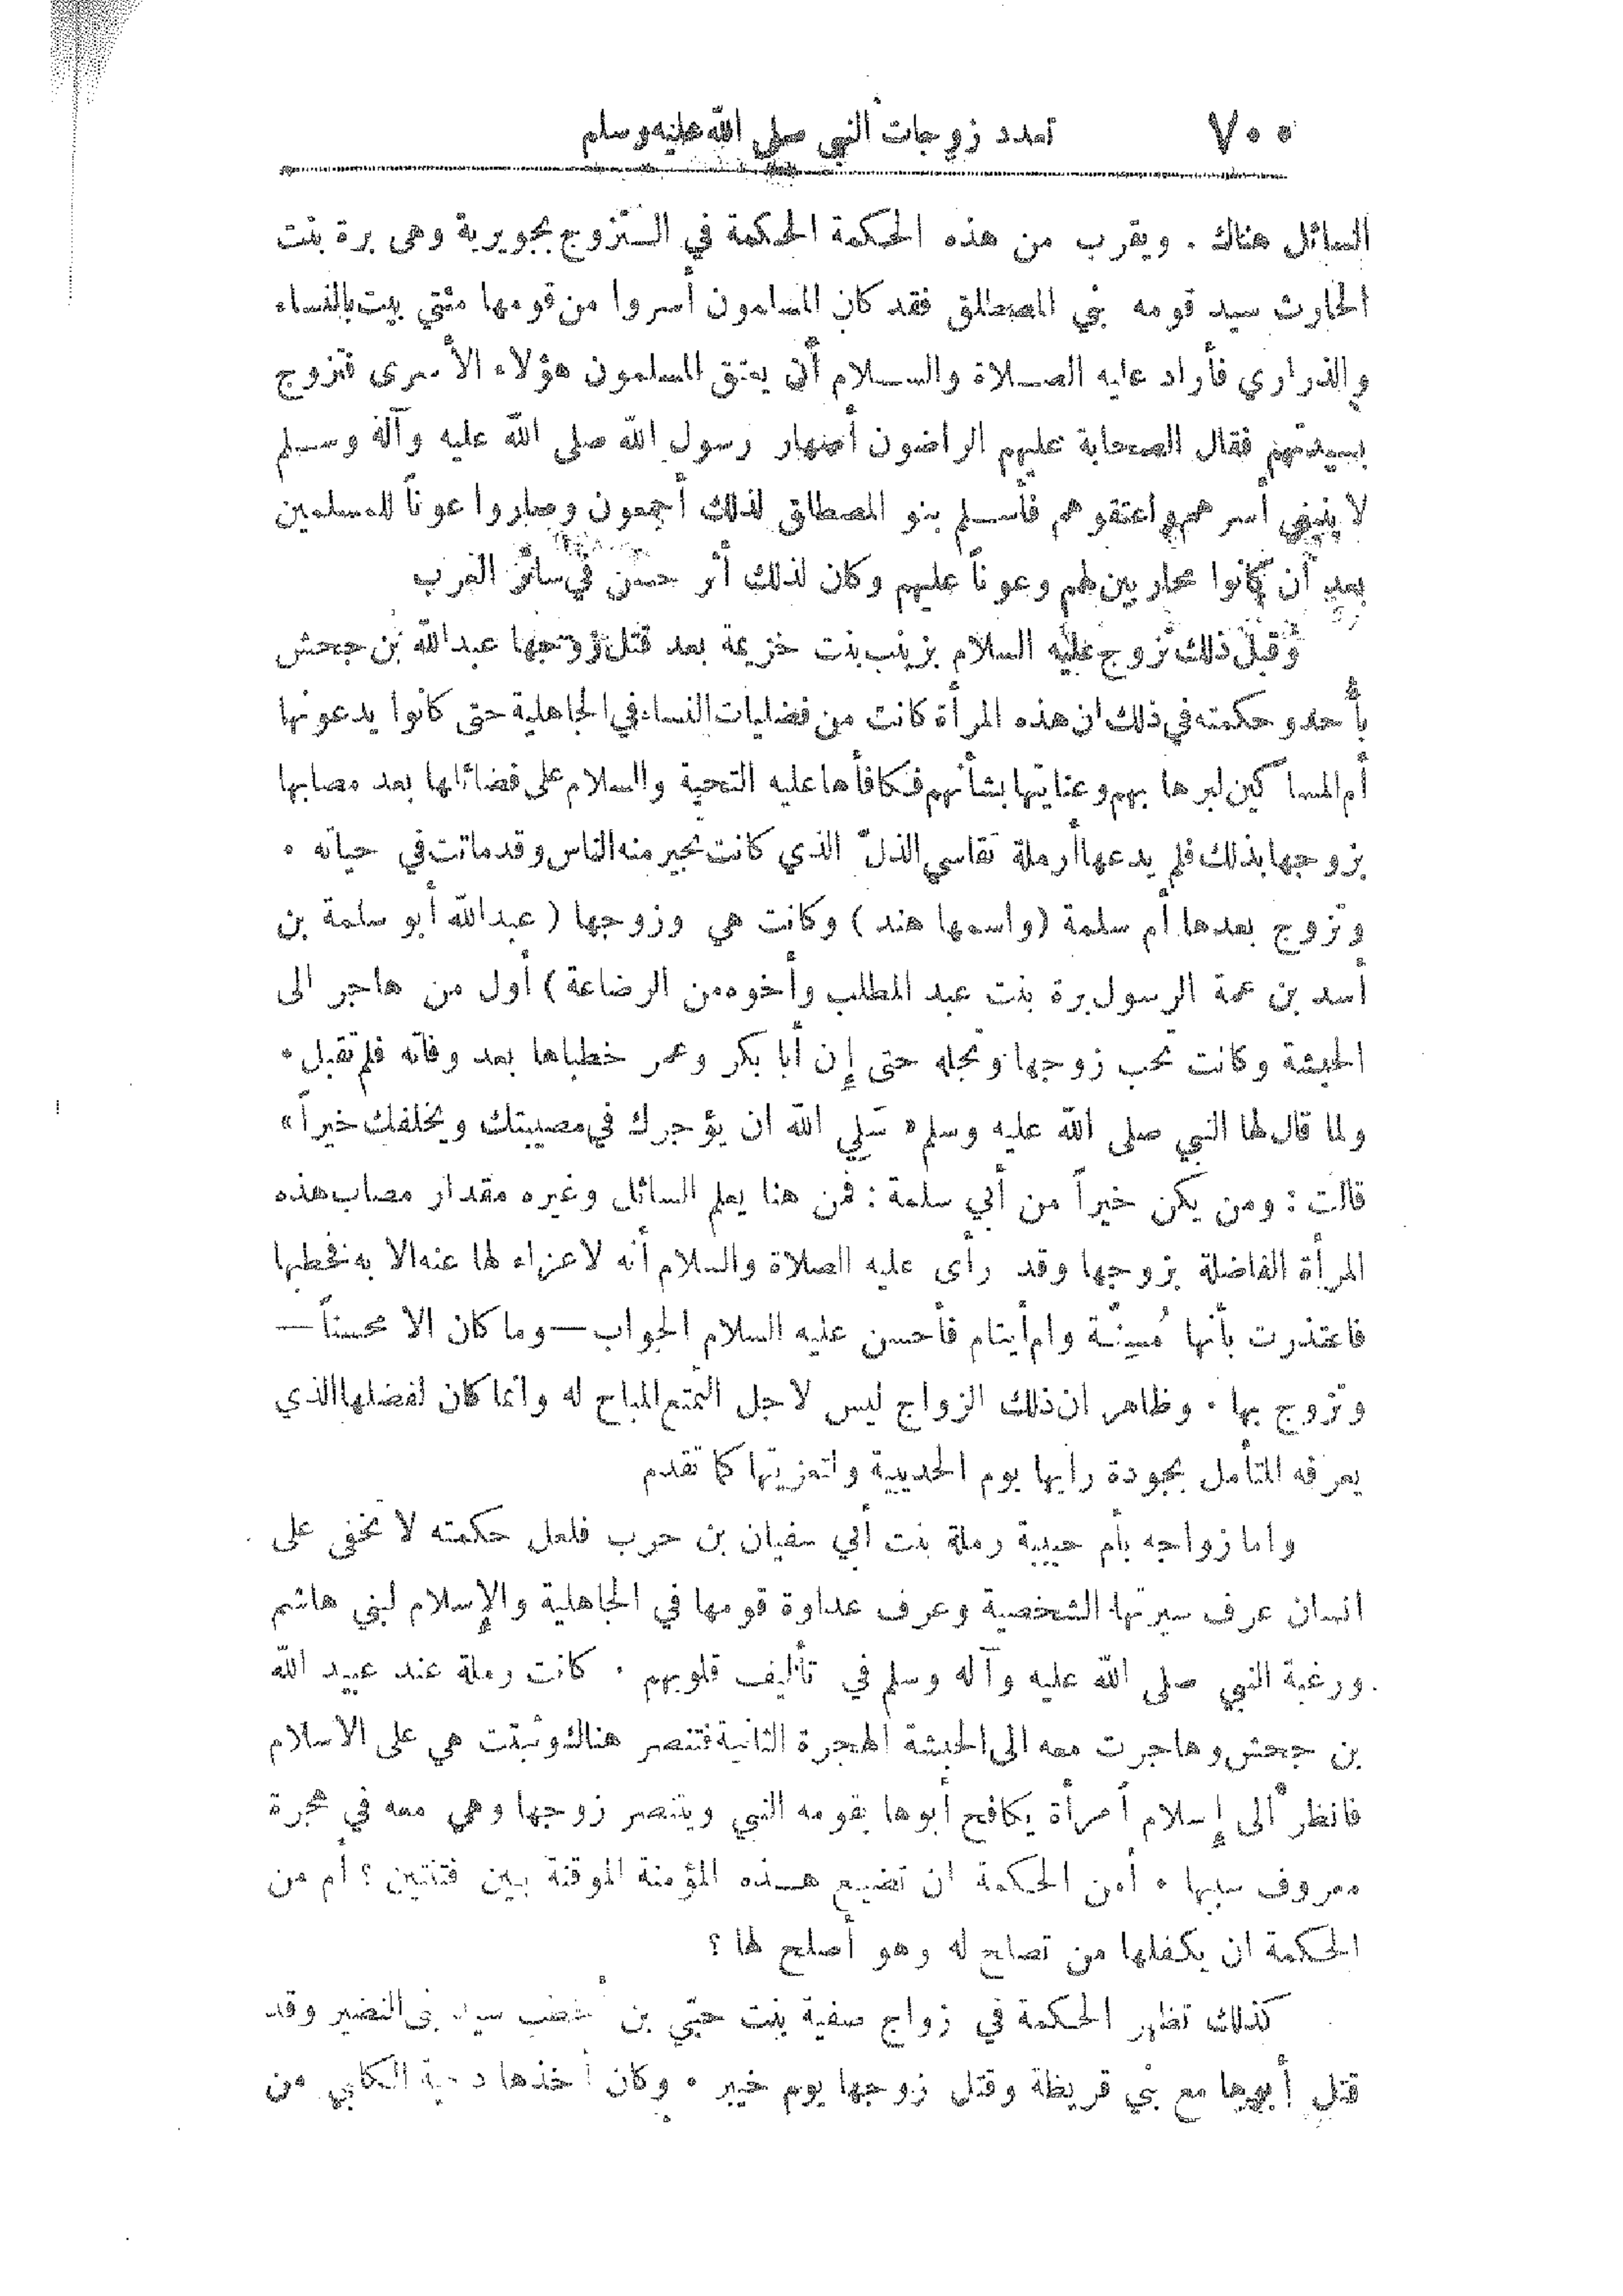 ٧٠٠ تعدد زوجات النبي صلى الله عليه وسلم
السائل هناك . ويقرب من هذه الحكمة الحكمة في التزوج بجويرية وهي برة بنت
الحارث سيد قومه بني المصطلق فقد كان المسلمون أسروا من قومها مئتي بيت بالنساء
والذراري فأراد عليه الصلاة والسلام أن يعتق المسلمون هؤلاء الأسرى فتزوج
بسيدتهم فقال الصحابة عليهم الراضون أصهار رسول الله صلى الله عليه وآله وسلم
لا ينبغي أسرهم واعتقوهم فأسلم بنو المصطلق لذلك أجمعون وصاروا عوناً للمسلمين
بعد أن كانوا محاربين لهم وعوناً عليهم وكان لذلك أثر حسن في سائر العرب
وقبل ذلك تزوج عليه السلام بزينب بنت خزيمة بعد قتل زوجها عبدالله بن جحش
بأحد وحكمته في ذلك ان هذه المرأة كانت من فضليات النساء في الجاهلية حتى كانوا يدعونها
أم المساكين لبرها بهم وعنايتها بشأنهم فكافأها عليه التحية والسلام على فضائلها بعد مصابها
بزوجها بذلك فلم يدعها أرملة تقاسي الذل الذي كانت تجير منه الناس وقد ماتت في حياته .
وتزوج بعدها أم سلمة (واسمها هند) وكانت هي وزوجها (عبدالله أبو سلمة بن
أسد بن عمة الرسول برة بنت عبد المطلب وأخوه من الرضاعة) أول من هاجر الى
الحبشة وكانت تحب زوجها وتجله حتى إن أبا بكر وعمر خطباها بعد وفاته فلم تقبل .
ولما قال لها النبي صلى الله عليه وسلم « سَلي الله ان يؤجرك في مصيبتك ويخلفك خيراً »
قالت : ومن يكن خيراً من أبي سلمة : فمن هنا يعلم السائل وغيره مقدار مصاب هذه
المرأة الفاضلة بزوجها وقد رأى عليه الصلاة والسلام أنه لا عزاء لها عنه الا به فخطبها
فاعتذرت بأنها مُسِنّة وام أيتام فأحسن عليه السلام الجواب — وما كان الا محسناً —
وتزوج بها . وظاهر ان ذلك الزواج ليس لاجل التمتع المباح له وانما كان لفضلها الذي
يعرفه المتأمل بجودة رأيها يوم الحديبية ولتعزيتها كما تقدم
واما زواجه بأم حبيبة رملة بنت أبي سفيان بن حرب فلعل حكمته لا تخفى على
انسان عرف سيرتها الشخصية وعرف عداوة قومها في الجاهلية والإسلام لبني هاشم
ورغبة النبي صلى الله عليه وآله وسلم في تأليف قلوبهم . كانت رملة عند عبيد الله
بن جحش وهاجرت معه الى الحبشة الهجرة الثانية فتنصر هناك وثبتت هي على الاسلام
فانظر ألى إسلام أمرأة يكافح أبوها بقومه النبي ويتنصر زوجها وهي معه في هجرة
معروف سببها . أمن الحكمة ان تضيع هذه المؤمنة الموقنة بين فتنتين ؟ أم من
الحكمة ان يكفلها من تصلح له وهو أصلح لها ؟
كذلك تظهر الحكمة في زواج صفية بنت حيّي بن أخطب سيد بني النضير وقد
قتل أبوها مع بني قريظة وقتل زوجها يوم خيبر . وكان أخذها دحية الكلبي من